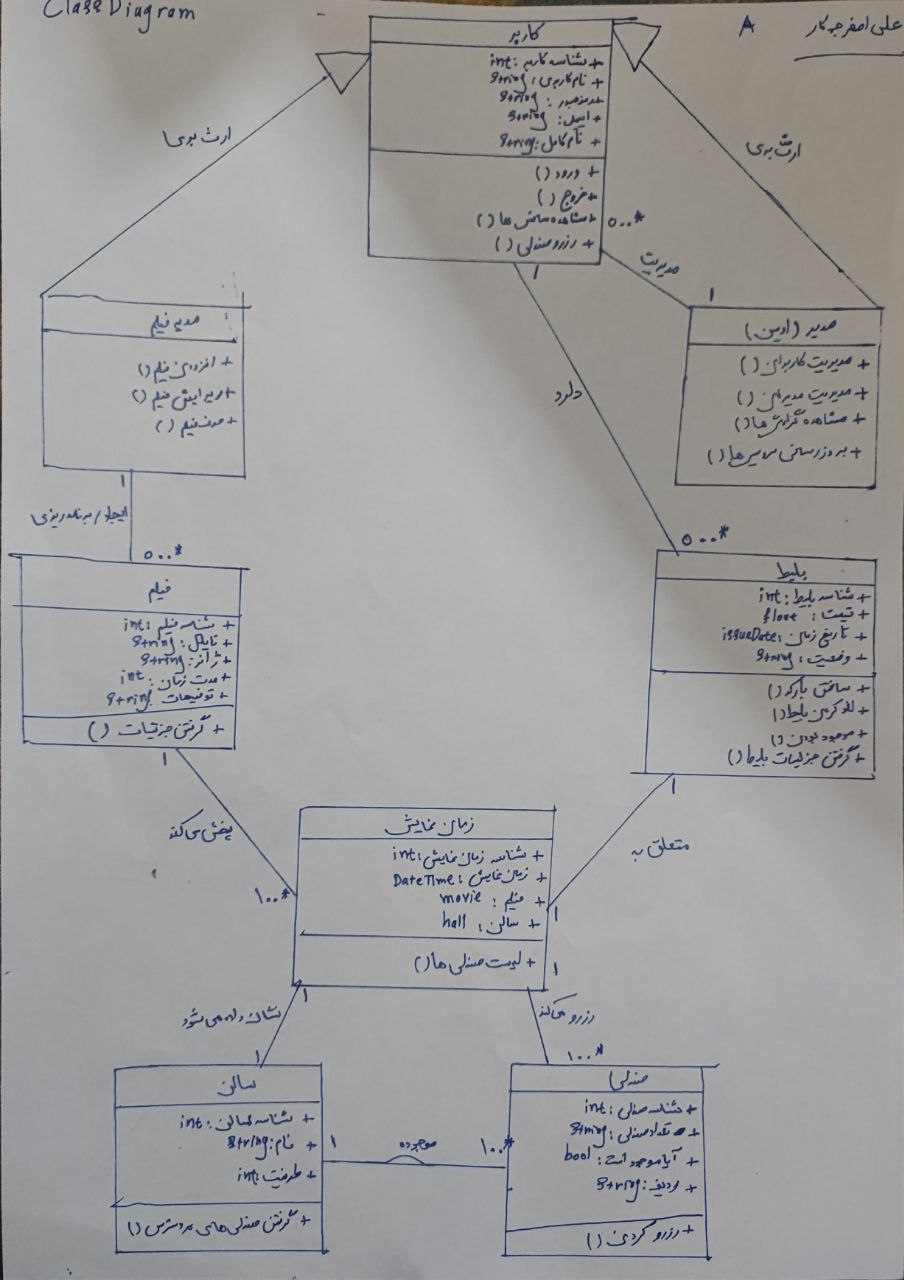 Class Diagram
A
علی اصغر جه کار
کاربر
+ شناسه کاربر : int
+ نام کاربری : String
+ رمز عبور : String
+ ایمیل : String
+ نام کامل : String
+ ورود ()
+ خروج ()
+ مشاهده سانس ها ()
+ رزرو صندلی ()
ارث بری
ارث بری
0..*
مدیریت
1
1
دارد
0..*
مدیر فیلم
+ افزودن فیلم ()
+ ویرایش فیلم ()
+ حذف فیلم ()
1
ایجاد / برنامه ریزی
0..*
مدیر (ادمین)
+ مدیریت کاربران ()
+ مدیریت مدیران ()
+ مشاهده گزارش ها ()
+ بروزرسانی ها ()
فیلم
+ شناسه فیلم : int
+ تایتل : String
+ ژانر : String
+ مدت زمان : int
+ توضیحات : String
+ گرفتن جزئیات ()
1
پخش می کند
1..*
بلیط
+ شناسه بلیط : int
+ قیمت : float
+ تاریخ زمان : issueDate
+ وضعیت : String
+ ساختن بارکد ()
+ لغو کردن بلیط ()
+ موجود بودن ()
+ گرفتن جزئیات بلیط ()
1
متعلق به
1
زمان نمایش
+ شناسه زمان نمایش : int
+ زمان نمایش : DateTime
+ فیلم : movie
+ سالن : hall
+ لیست صندلی ها ()
1
نشان داده می شود
1
1
رزرو می کند
1..*
سالن
+ شناسه سالن : int
+ نام : String
+ ظرفیت : int
+ گرفتن صندلی های در دسترس ()
1
موجوده
1..*
صندلی
+ شناسه صندلی : int
+ تعداد صندلی : String
+ آیا موجود است : bool
+ ردیف : String
+ رزرو کردن ()